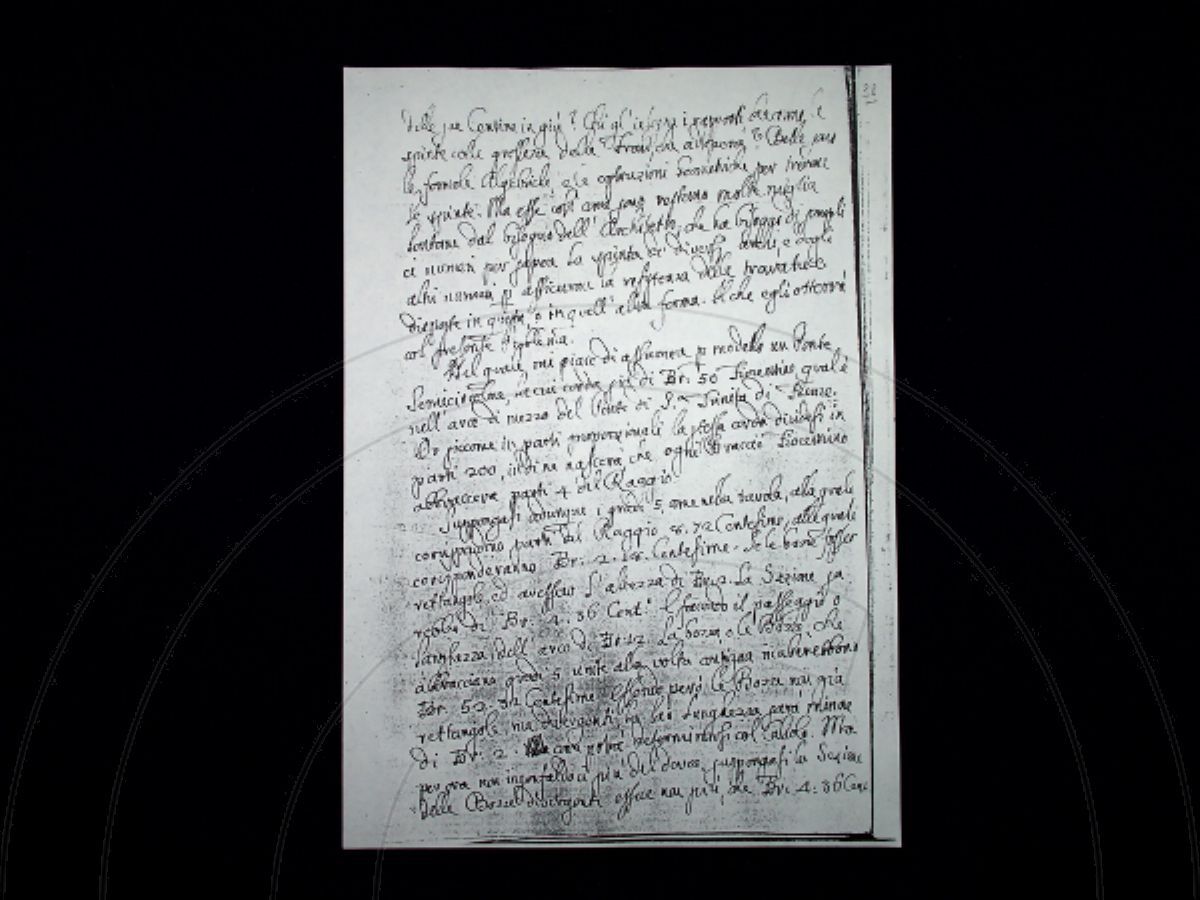 38
delle sue
spinte colle grossezze delle Belle sono
le formole Algebriche, e le costruzioni Geometriche per trovare
le spinte. Ma esse così come sono restano molte miglia
lontane dal bisogno dell' Architetto, che ha bisogno di
ci numeri per sapere la spinta de' diversi archi, e degli
altri numeri p assicurarsi la resistenza delle
disposte in questa, o in quell' altra forma. Il che egli otterrà
col presente Problema.
Nel quale mi piace di assumere p modello un Ponte
Semicircolare, la cui corda sia di Br: 50 Fiorentine, qual è
nell' arco di mezzo del Ponte di S.a Trinita di Firenze.
Or siccome in parti proporzionali la stessa corda dividesi in
parti 200, indi ne nascerà che ogni Braccio Fiorentino
abbraccerà parti 4 del Raggio.
Suppongasi adunque i gradi 5 come nella tavola, alla quale
corrispondono parti del Raggio 8.72 Centesime, alle quali
corrisponderanno Br: 2.18 Centesime. Se le bozze fosser
rettangole, ed avessero l'altezza di Br. 2. La Sezione sa
rebbe di Br: 4.36 Cent.e E facendo il passeggio o
larghezza dell' arco di Br 12. La bozza, o le Bozze, che
abbracciano gradi 5 unite alla volta
Br. 52.32 Centesime. Essendo però le Bozze non già
rettangole, ma divergenti, la loro lunghezza sarà minore
di Br: 2. come potrà determinarsi col Calcolo. Ma
per ora non più del dovere, suppongasi la Sezione
delle Bozze divergenti essere non più, che Br: 4.36 Cent